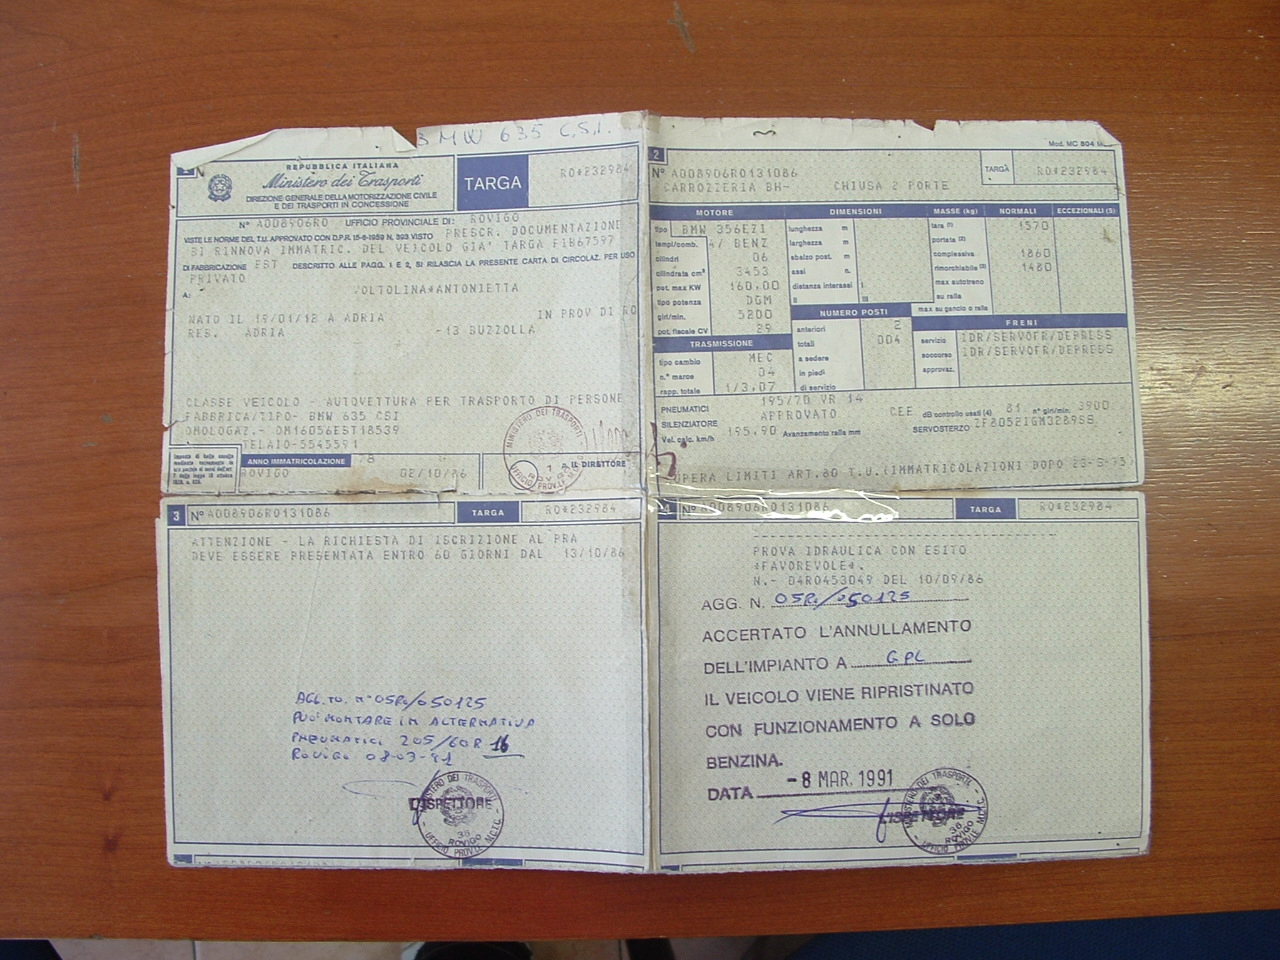 BMW 635 C.S.I.
1
REPUBBLICA ITALIANA
Ministero dei Trasporti
DIREZIONE GENERALE DELLA MOTORIZZAZIONE CIVILE
E DEI TRASPORTI IN CONCESSIONE
TARGA
RO*232984
N° A008906RO UFFICIO PROVINCIALE DI: ROVIGO
VISTE LE NORME DEL T.U. APPROVATO CON D.P.R. 15-6-1959 N. 393 VISTO PRESCR. DOCUMENTAZIONE
SI RINNOVA IMMATRIC. DEL VEICOLO GIA' TARGA FI867597
DI FABBRICAZIONE EST DESCRITTO ALLE PAGG. 1 E 2, SI RILASCIA LA PRESENTE CARTA DI CIRCOLAZ. PER USO
PRIVATO
A: VOLTOLINA*ANTONIETTA
NATO IL 19/01/12 A ADRIA IN PROV DI RO
RES. ADRIA -13 BUZZOLLA
CLASSE VEICOLO - AUTOVETTURA PER TRASPORTO DI PERSONE
FABBRICA/TIPO- BMW 635 CSI
OMOLOGAZ.- OM16056EST18539
TELAIO-5545591
ANNO IMMATRICOLAZIONE 78
ROVIGO 02/10/86
IL DIRETTORE
2
Mod. MC 804
N° A008906RO131086
CARROZZERIA BH- CHIUSA 2 PORTE
TARGA
RO*232984
MOTORE
tipo BMW 356EZ1
tempi/comb. 4/ BENZ
cilindri 06
cilindrata cm³ 3453
pot. max KW 160,00
tipo potenza DGM
giri/min. 5200
pot. fiscale CV 29
TRASMISSIONE
tipo cambio MEC
n.° marce 04
rapp. totale 1/3,07
DIMENSIONI
lunghezza m
larghezza m
sbalzo post. m
assi n.
distanza interassi I
II III
NUMERO POSTI
anteriori 2
totali 004
a sedere
in piedi
di servizio
MASSE (kg) NORMALI ECCEZIONALI (5)
tara (1) 1570
portata (2)
complessiva 1860
rimorchiabile (3) 1480
max autotreno
su ralla
max su gancio o ralla
FRENI
servizio IDR/SERVOFR/DEPRESS
soccorso IDR/SERVOFR/DEPRESS
approvaz.
PNEUMATICI 195/70 VR 14
SILENZIATORE APPROVATO CEE dB controllo usati (4) 81 n° giri/min. 3900
Vel. calc. km/h 195,90 Avanzamento ralla mm SERVOSTERZO ZF8052IGM3289SS
SUPERA LIMITI ART.80 T.U.(IMMATRICOLAZIONI DOPO 28-5-75)
3 N° A008906RO131086 TARGA RO*232984
ATTENZIONE - LA RICHIESTA DI ISCRIZIONE AL PRA
DEVE ESSERE PRESENTATA ENTRO 60 GIORNI DAL 13/10/86
AGG.TO. N° 05Ro/050125
PUO' MONTARE IN ALTERNATIVA
PNEUMATICI 205/60R 16
ROVIGO 08-03-91
L'ISPETTORE
MINISTERO DEI TRASPORTI
UFFICIO PROV. M.C.T.C.
36
ROVIGO
4 N° A008906RO131086 TARGA RO*232984
PROVA IDRAULICA CON ESITO
*FAVOREVOLE*.
N.- 04RO453049 DEL 10/09/86
AGG. N. 05Ro/050125
ACCERTATO L'ANNULLAMENTO
DELL'IMPIANTO A GPL
IL VEICOLO VIENE RIPRISTINATO
CON FUNZIONAMENTO A SOLO
BENZINA.
DATA -8 MAR. 1991
L'ISPETTORE
MINISTERO DEI TRASPORTI
UFFICIO PROV. M.C.T.C.
36
ROVIGO